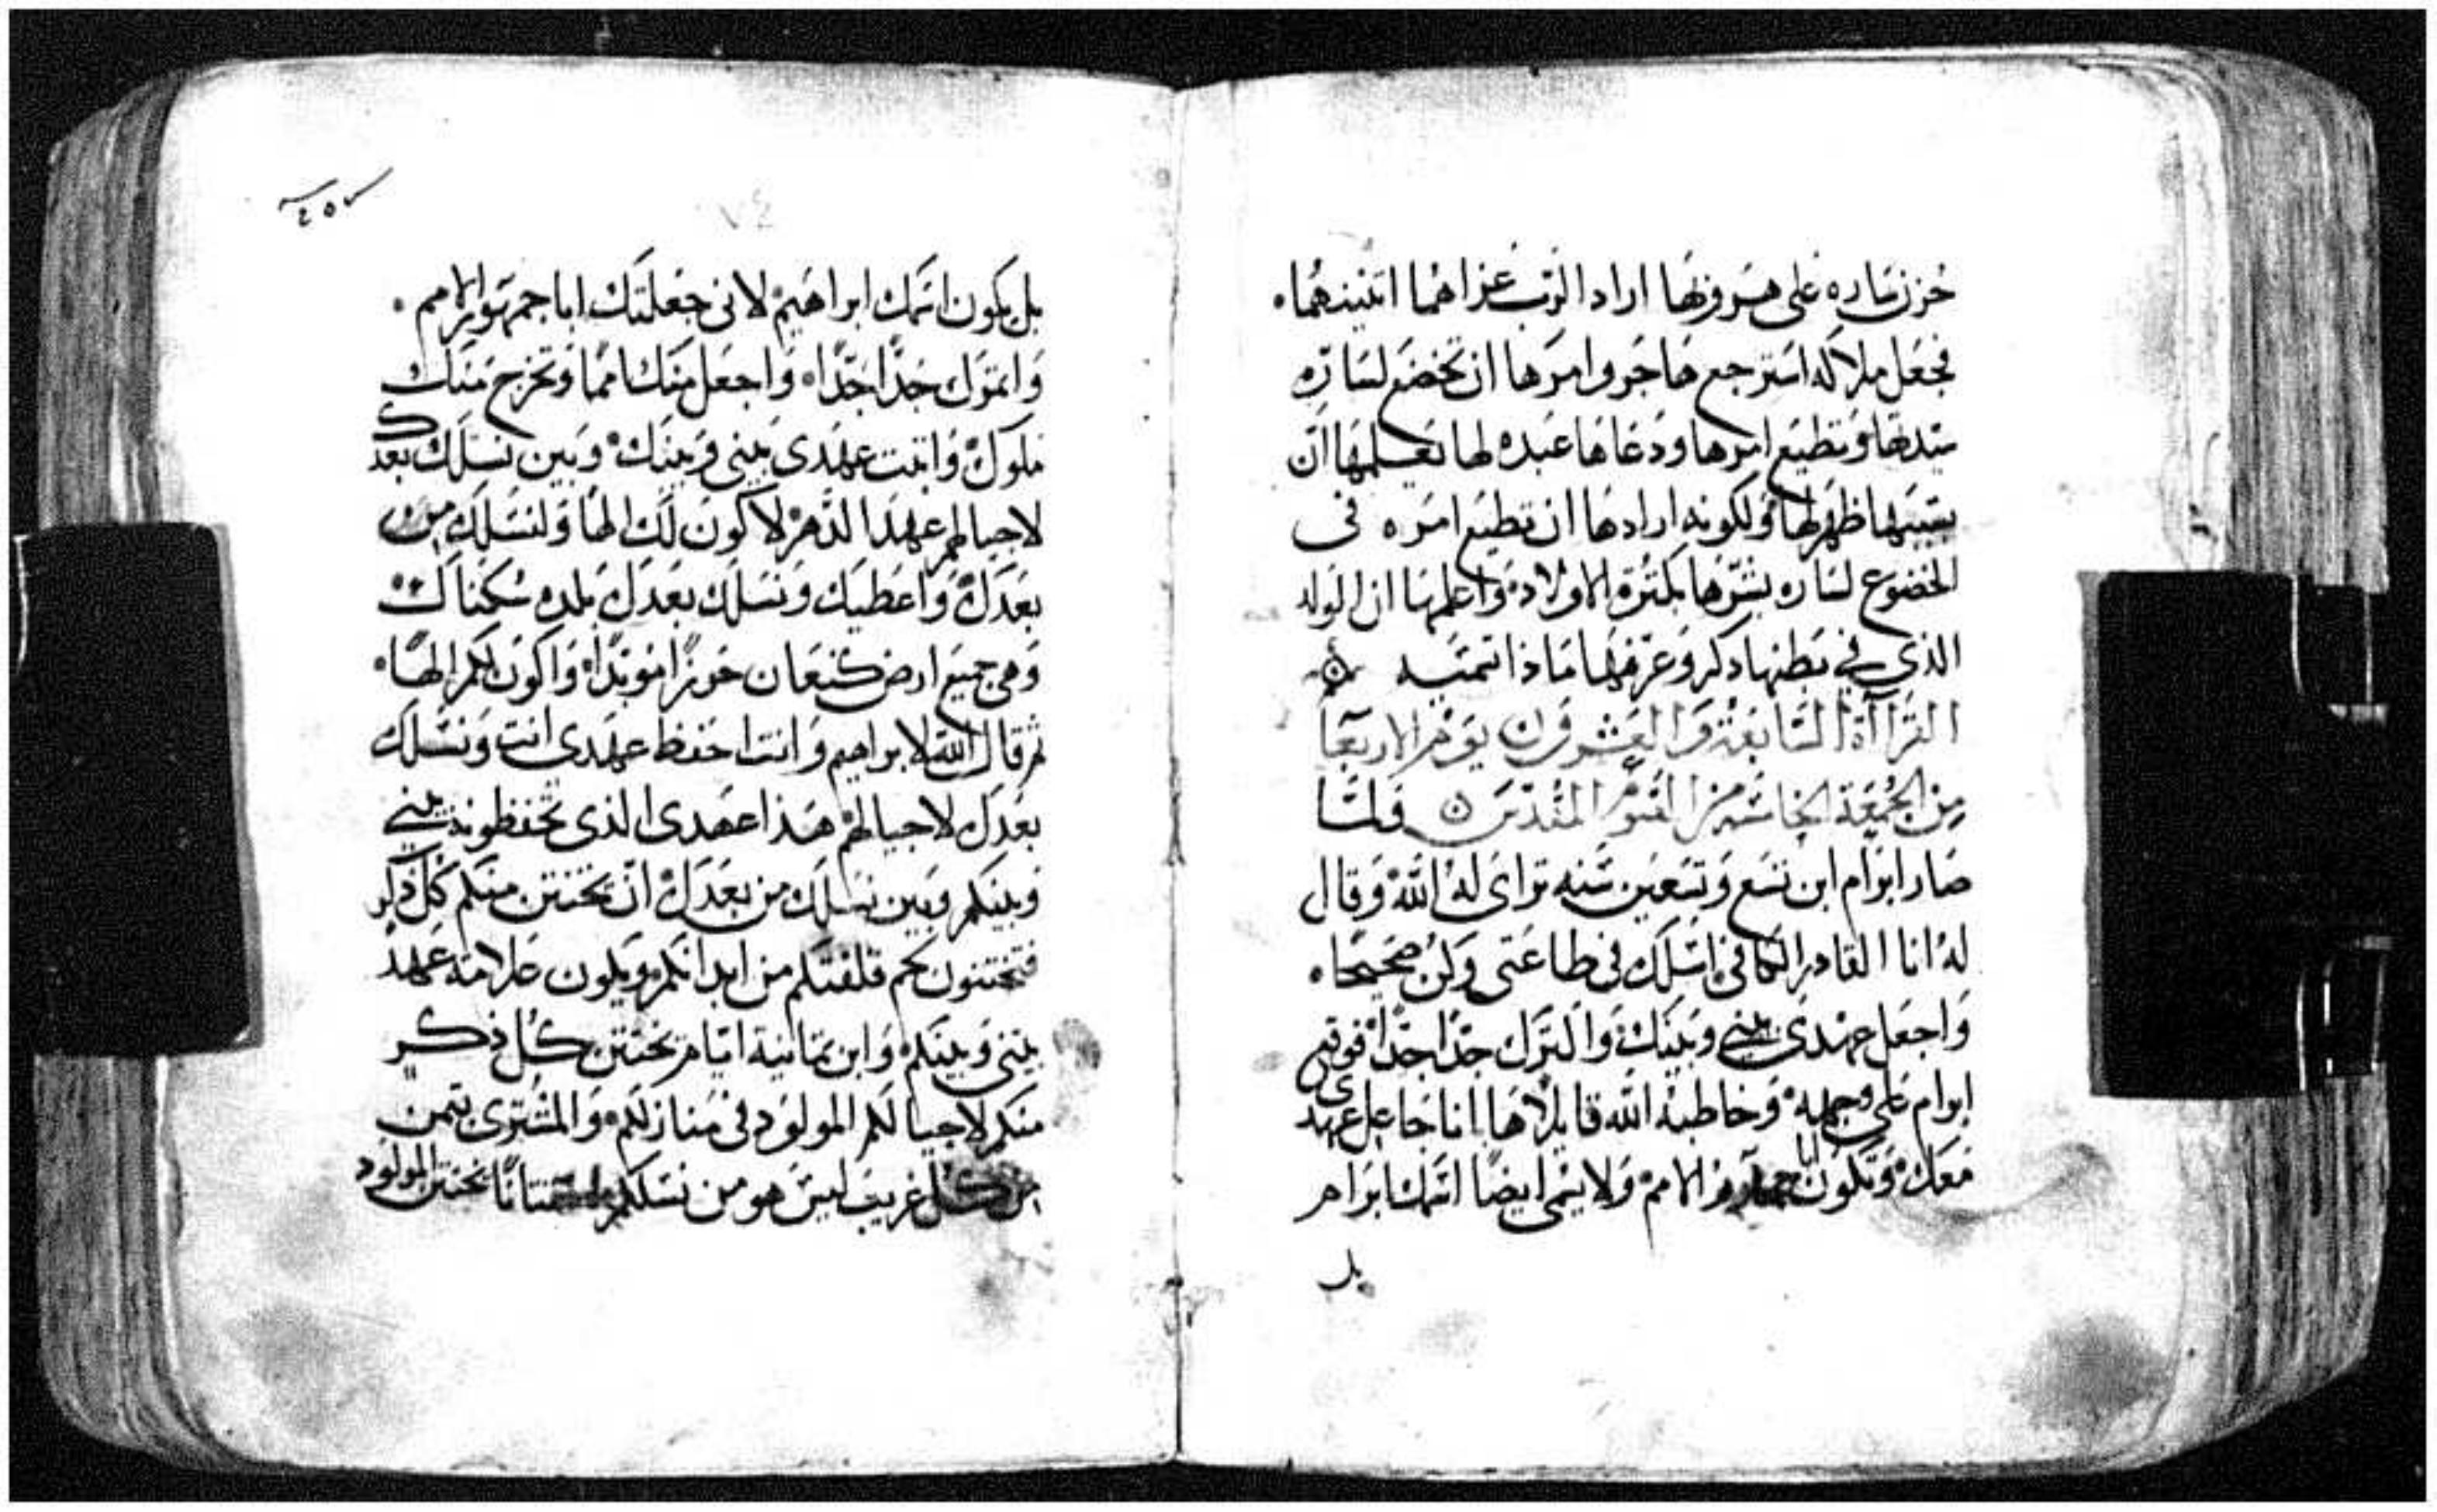 حزن ساره على هروبها اراد الرب عزاهما اثنيندهما.
فجعل ملاكه استرجع هاجر وامرها ان تخضع لساره
سيدتها وتطيع امرها ودعاها عبده لها تعلمها ان
بسببها ظهر لها ولكونه ارادها ان تطيع امره فى
الخضوع لساره بشرها بكثرة الاولاد واعلمها ان الولد
الذى فى بطنها دكر وعرفها ماذا تسميه
القرآآة السابعة والعشرون يوم الاربعا
من الجمعة الخامسه من الصوم المقدس ولما
صار ابرام ابن تسع وتسعين سنه تراى له الله وقال
له انا القادر الكافى اسلك فى طاعتى وكن صحيحا.
واجعل عهدى بينى وبينك واكثرك جدا جدا فوقع
ابرام على وجهه وخاطبه الله قايلا ها انا جاعل عهدى
معك وتكون ابا جمهور الامم ولا يسمى ايضا اسمك ابرام
بل
٧٤
بل يكون اسمك ابراهيم لانى جعلتك ابا جمهور الامم.
واثمرك جدا جدا واجعل منك امما وتخرج منك
ملوك واثبت عهدى بينى وبينك وبين نسلك بعدك
لاجيالهم عهد الدهر لاكون لك الها ولنسلك من
بعدك واعطيك ونسلك بعدك بلده سكناك
وهى جميع ارض كنعان حوزا موبدا واكون لكم الها.
ثم قال الله لابراهيم وانت احفظ عهدى انت ونسلك
بعدك لاجيالهم هذا عهدى الذى تحفظونه بينى
وبينكم وبين نسلك من بعدك ان يختتن منكم كل ذكر
فتختنون لحم قلفتكم من ابدانكم ويكون علامة عهد
بينى وبينكم وابن ثمانية ايام يختتن كل ذكر
منكم لاجيالكم المولود فى منازلكم والمشترى بثمن
من كل غريب ليس هو من نسلكم اختتانا يختتن المولود